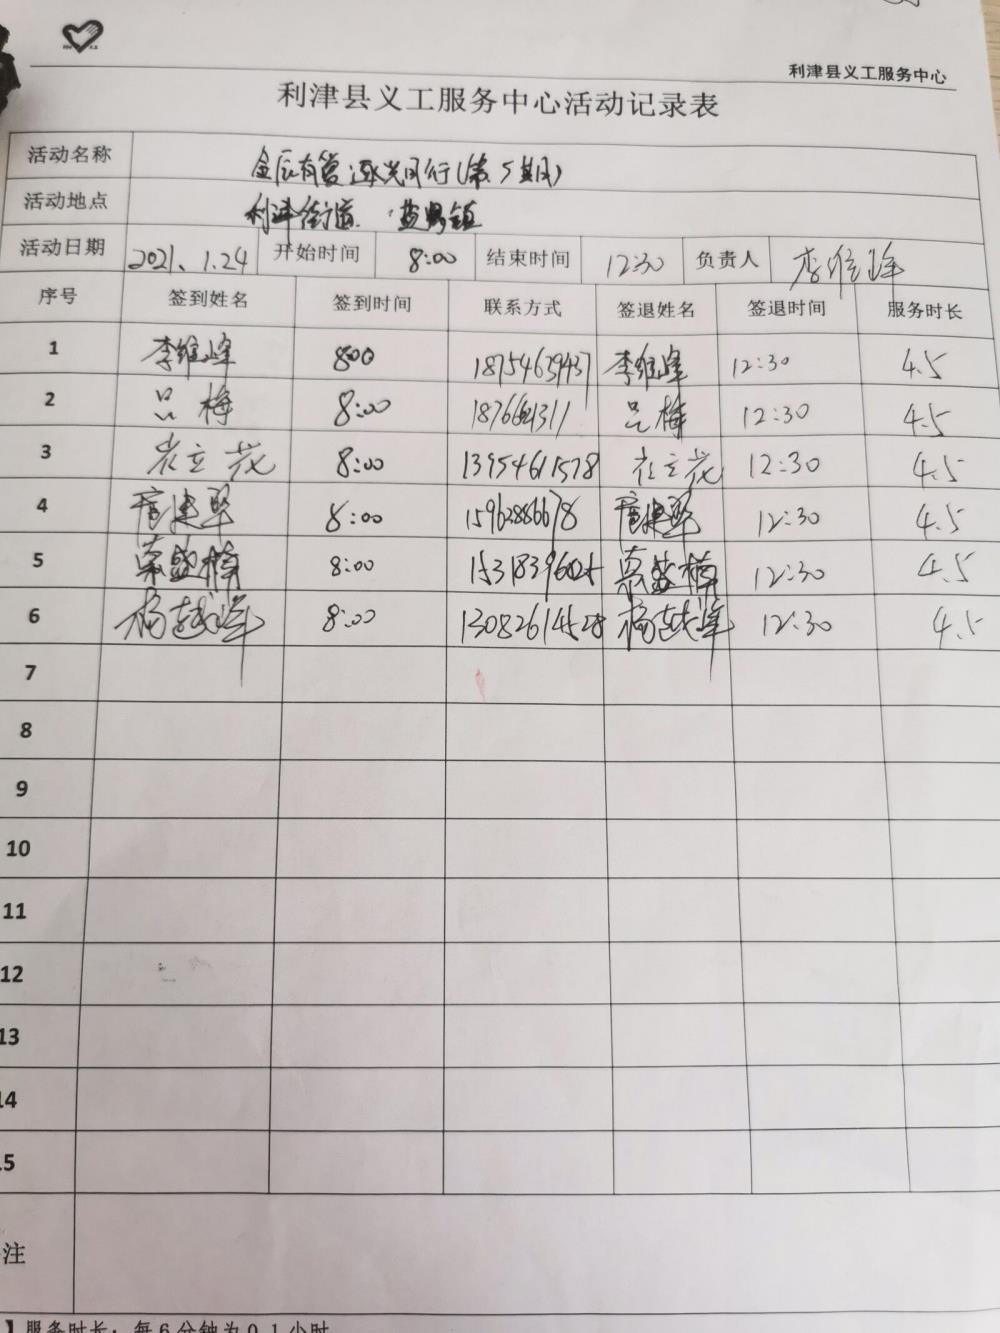 利津县义工服务中心
利津县义工服务中心活动记录表
活动名称 金辰有爱 逐光同行(第5期)
活动地点 利津街道 盐窝镇
活动日期 2021.1.24 开始时间 8:00 结束时间 12:30 负责人 李维峰
序号 签到姓名 签到时间 联系方式 签退姓名 签退时间 服务时长
1 李维峰 8:00 18754639437 李维峰 12:30 4.5
2 吕梅 8:00 吕梅 12:30 4.5
3 崔立花 8:00 13954611578 崔立花 12:30 4.5
4 8:00 15962886678 12:30 4.5
5 8:00 12:30 4.5
6 杨越峰 8:00 13082614528 杨越峰 12:30 4.5
7
8
9
10
11
12
13
14
15
注
】服务时长：每6分钟为0.1小时